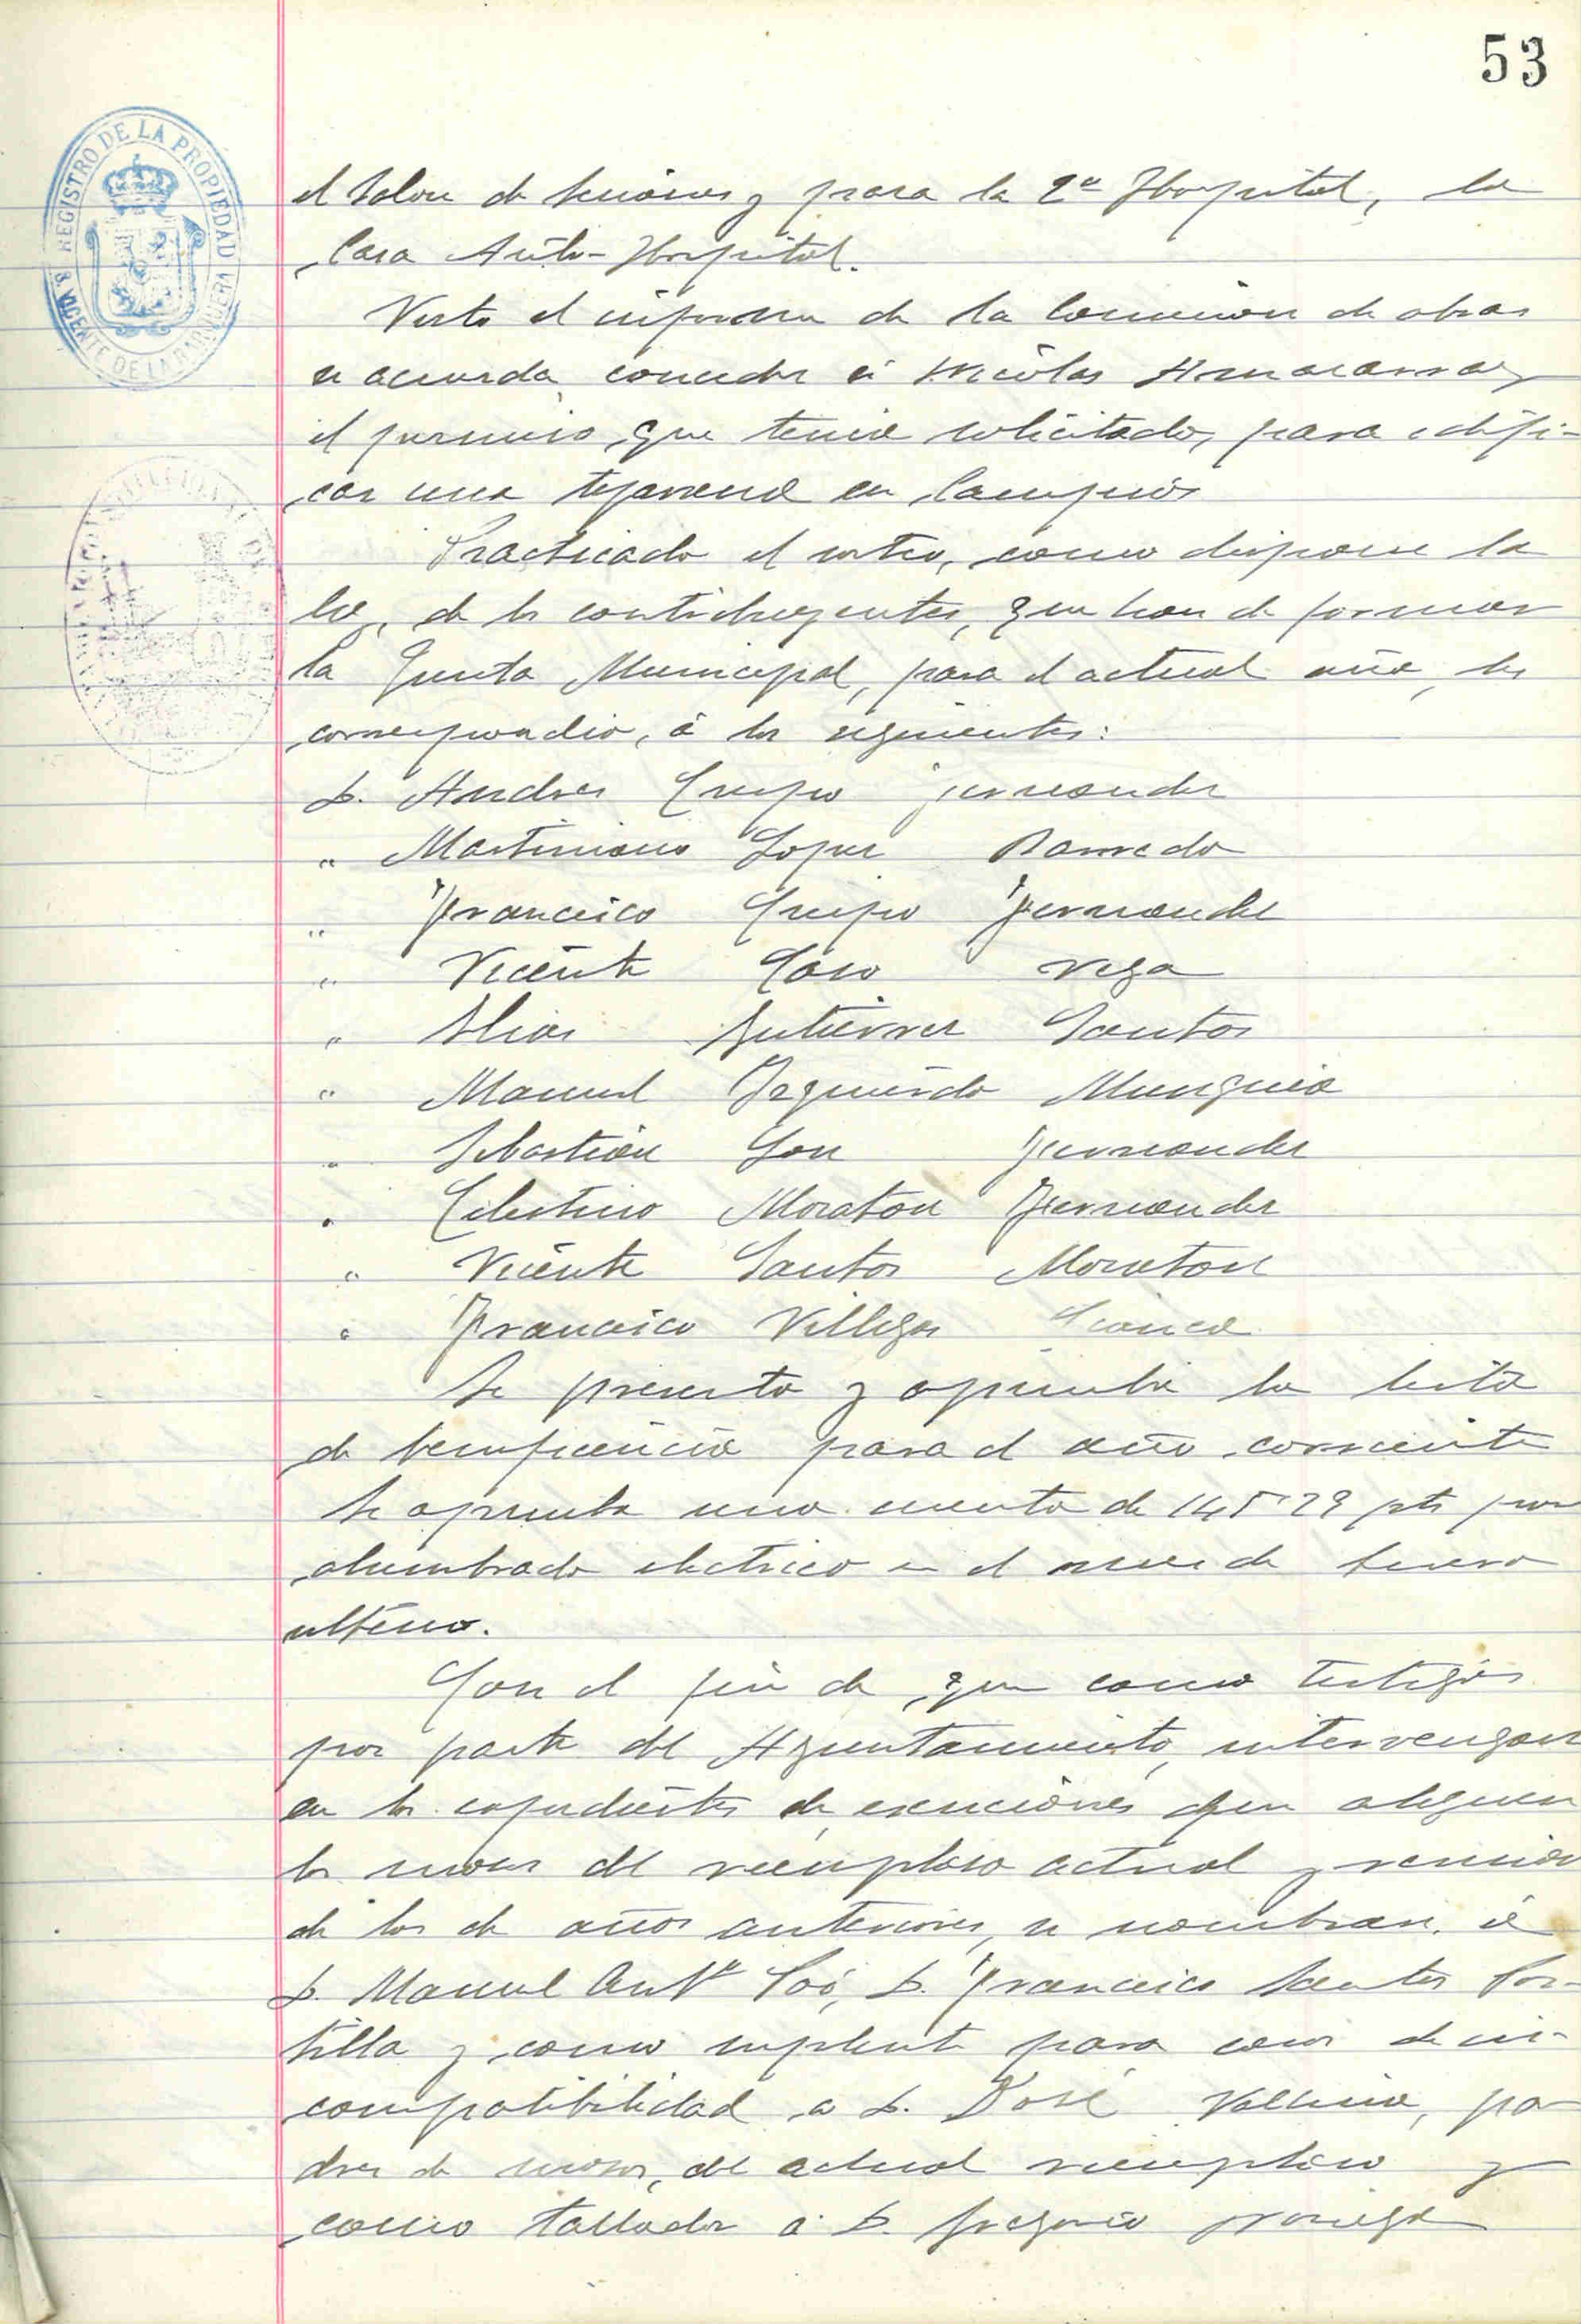 53
REGISTRO DE LA PROPIEDAD
S. VICENTE DE LA BARQUERA
el Salon de sesiones y para la 2ª Hospital, la
Casa Asilo-Hospital.
Visto el informe de la Comision de obras
se acuerda conceder á Nicolas
el permiso, que tenia solicitado, para edifi-
car una tejavana en
Practicado el sorteo, como dispone la
ley, de los contribuyentes, que han de formar
la Junta Municipal, para el actual año, les
correspondio, á los siguientes:
D. Andres Crespo Fernandez
" Martiniano Lopez
" Francisco Crespo Fernandez
" Vicente Coso Vega
" Elias Gutierrez Santos
" Manuel Izquierdo Munguia
" Sebastián Gon Fernandez
" Celestino Moraton Fernandez
" Vicente Santos Moraton
" Francisco Villegas
Se presenta y aprueba la lista
de beneficencia para el año corriente
Se aprueba una cuenta de 145'29 pts por
alumbrado electrico en el mes de Enero
ultimo.
Con el fin de, que como testigos
por parte del Ayuntamiento, intervengan
en los expedientes de exenciones que aleguen
los mozos del reemplazo actual y revision
de los de años anteriores, se nombran, á
D. Manuel Antº D. Francisco Santos Por-
tilla y como suplente para caso de in-
compatibilidad a D. José Vallina, pa
dres de mozos, del actual reemplazo y
como tallador á D. Gregorio Noriega